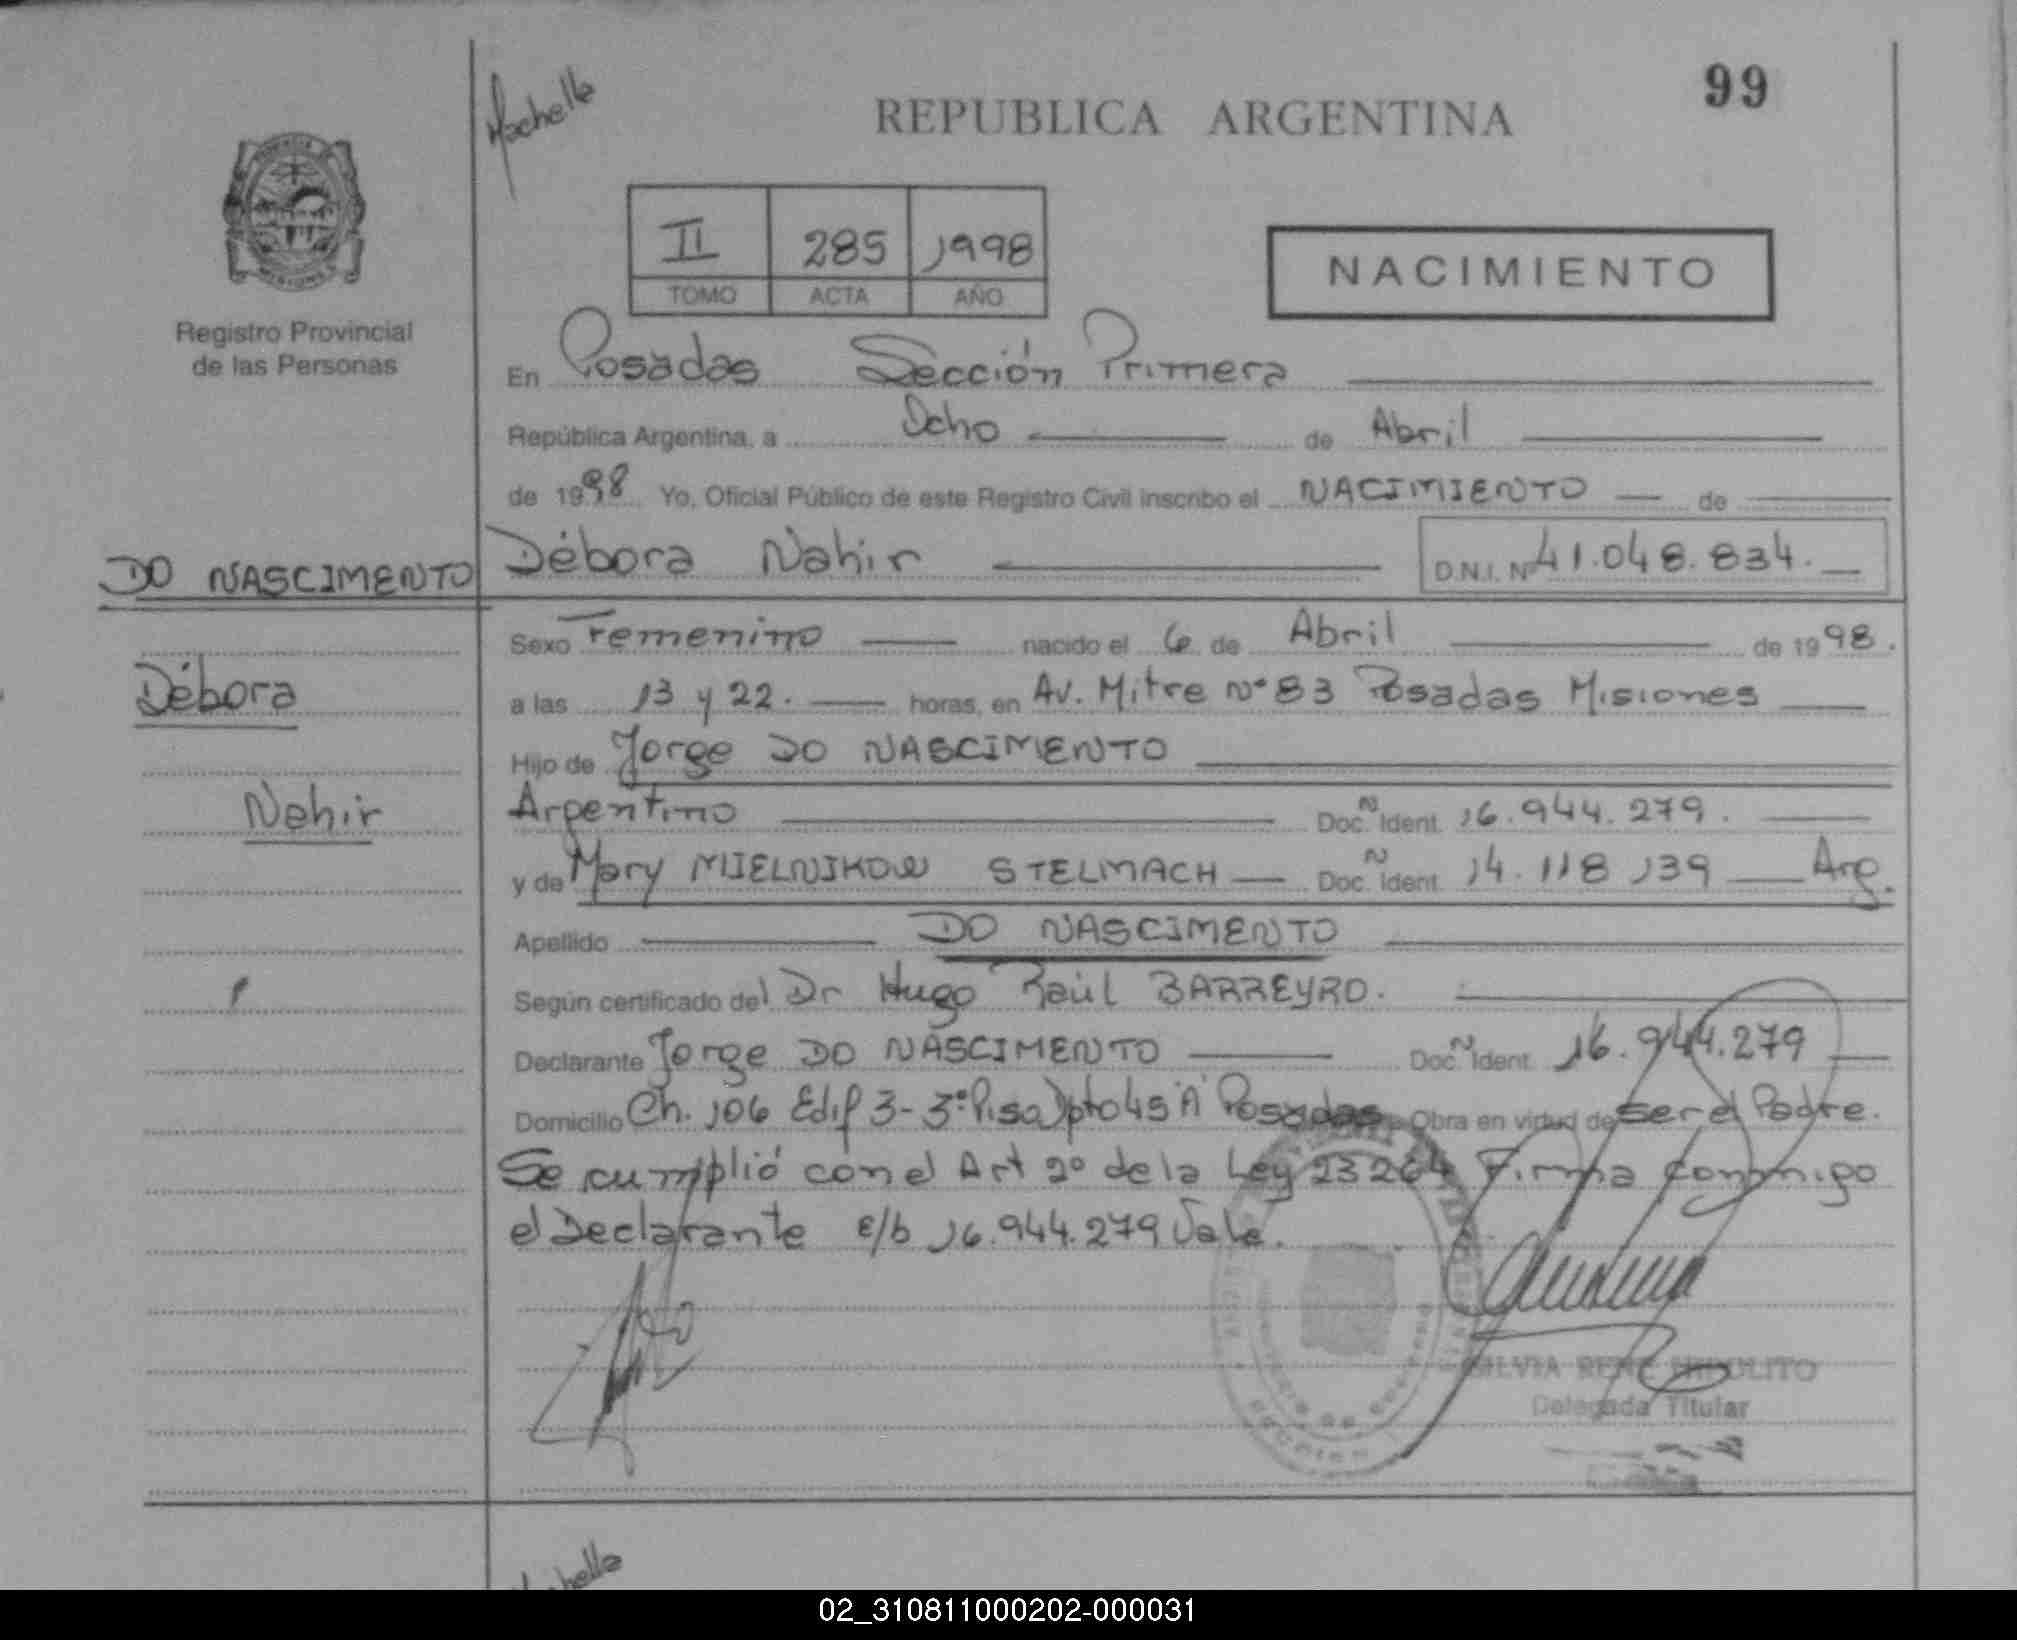 99
Machella
REPUBLICA ARGENTINA
II 285 1998
TOMO ACTA AÑO
NACIMIENTO
Registro Provincial
de las Personas
En Posadas Sección Primera
República Argentina, a Ocho de Abril
de 1998 Yo, Oficial Público de este Registro Civil inscribo el NACIMIENTO de
DO NASCIMENTO Débora Nahir D.N.I. Nº 41.048.834.
Sexo Femenino nacido el 6 de Abril de 1998.
Débora
a las 13 y 22. horas, en Av. Mitre Nº 83 Posadas Misiones
Hijo de Jorge DO NASCIMENTO
Nahir
Argentino Doc. Nº Ident. 16.944.279.
y de Mary MIELNIKOW STELMACH Doc. Nº Ident. 14.118.139 Arg.
Apellido DO NASCIMENTO
Según certificado del Dr Hugo Raúl BARREYRO.
Declarante Jorge DO NASCIMENTO Doc. Nº Ident. 16.944.279
Domicilio Ch. 106 Edif 3-3º Piso Dpto 45 "A" Posadas Obra en virtud de ser el Padre.
Se cumplió con el Art 2º de la Ley 23264 Firma conmigo
el Declarante E/b 16.944.279 Vale.
SILVIA RENE HIPOLITO
Delegada Titular
02_310811000202-000031